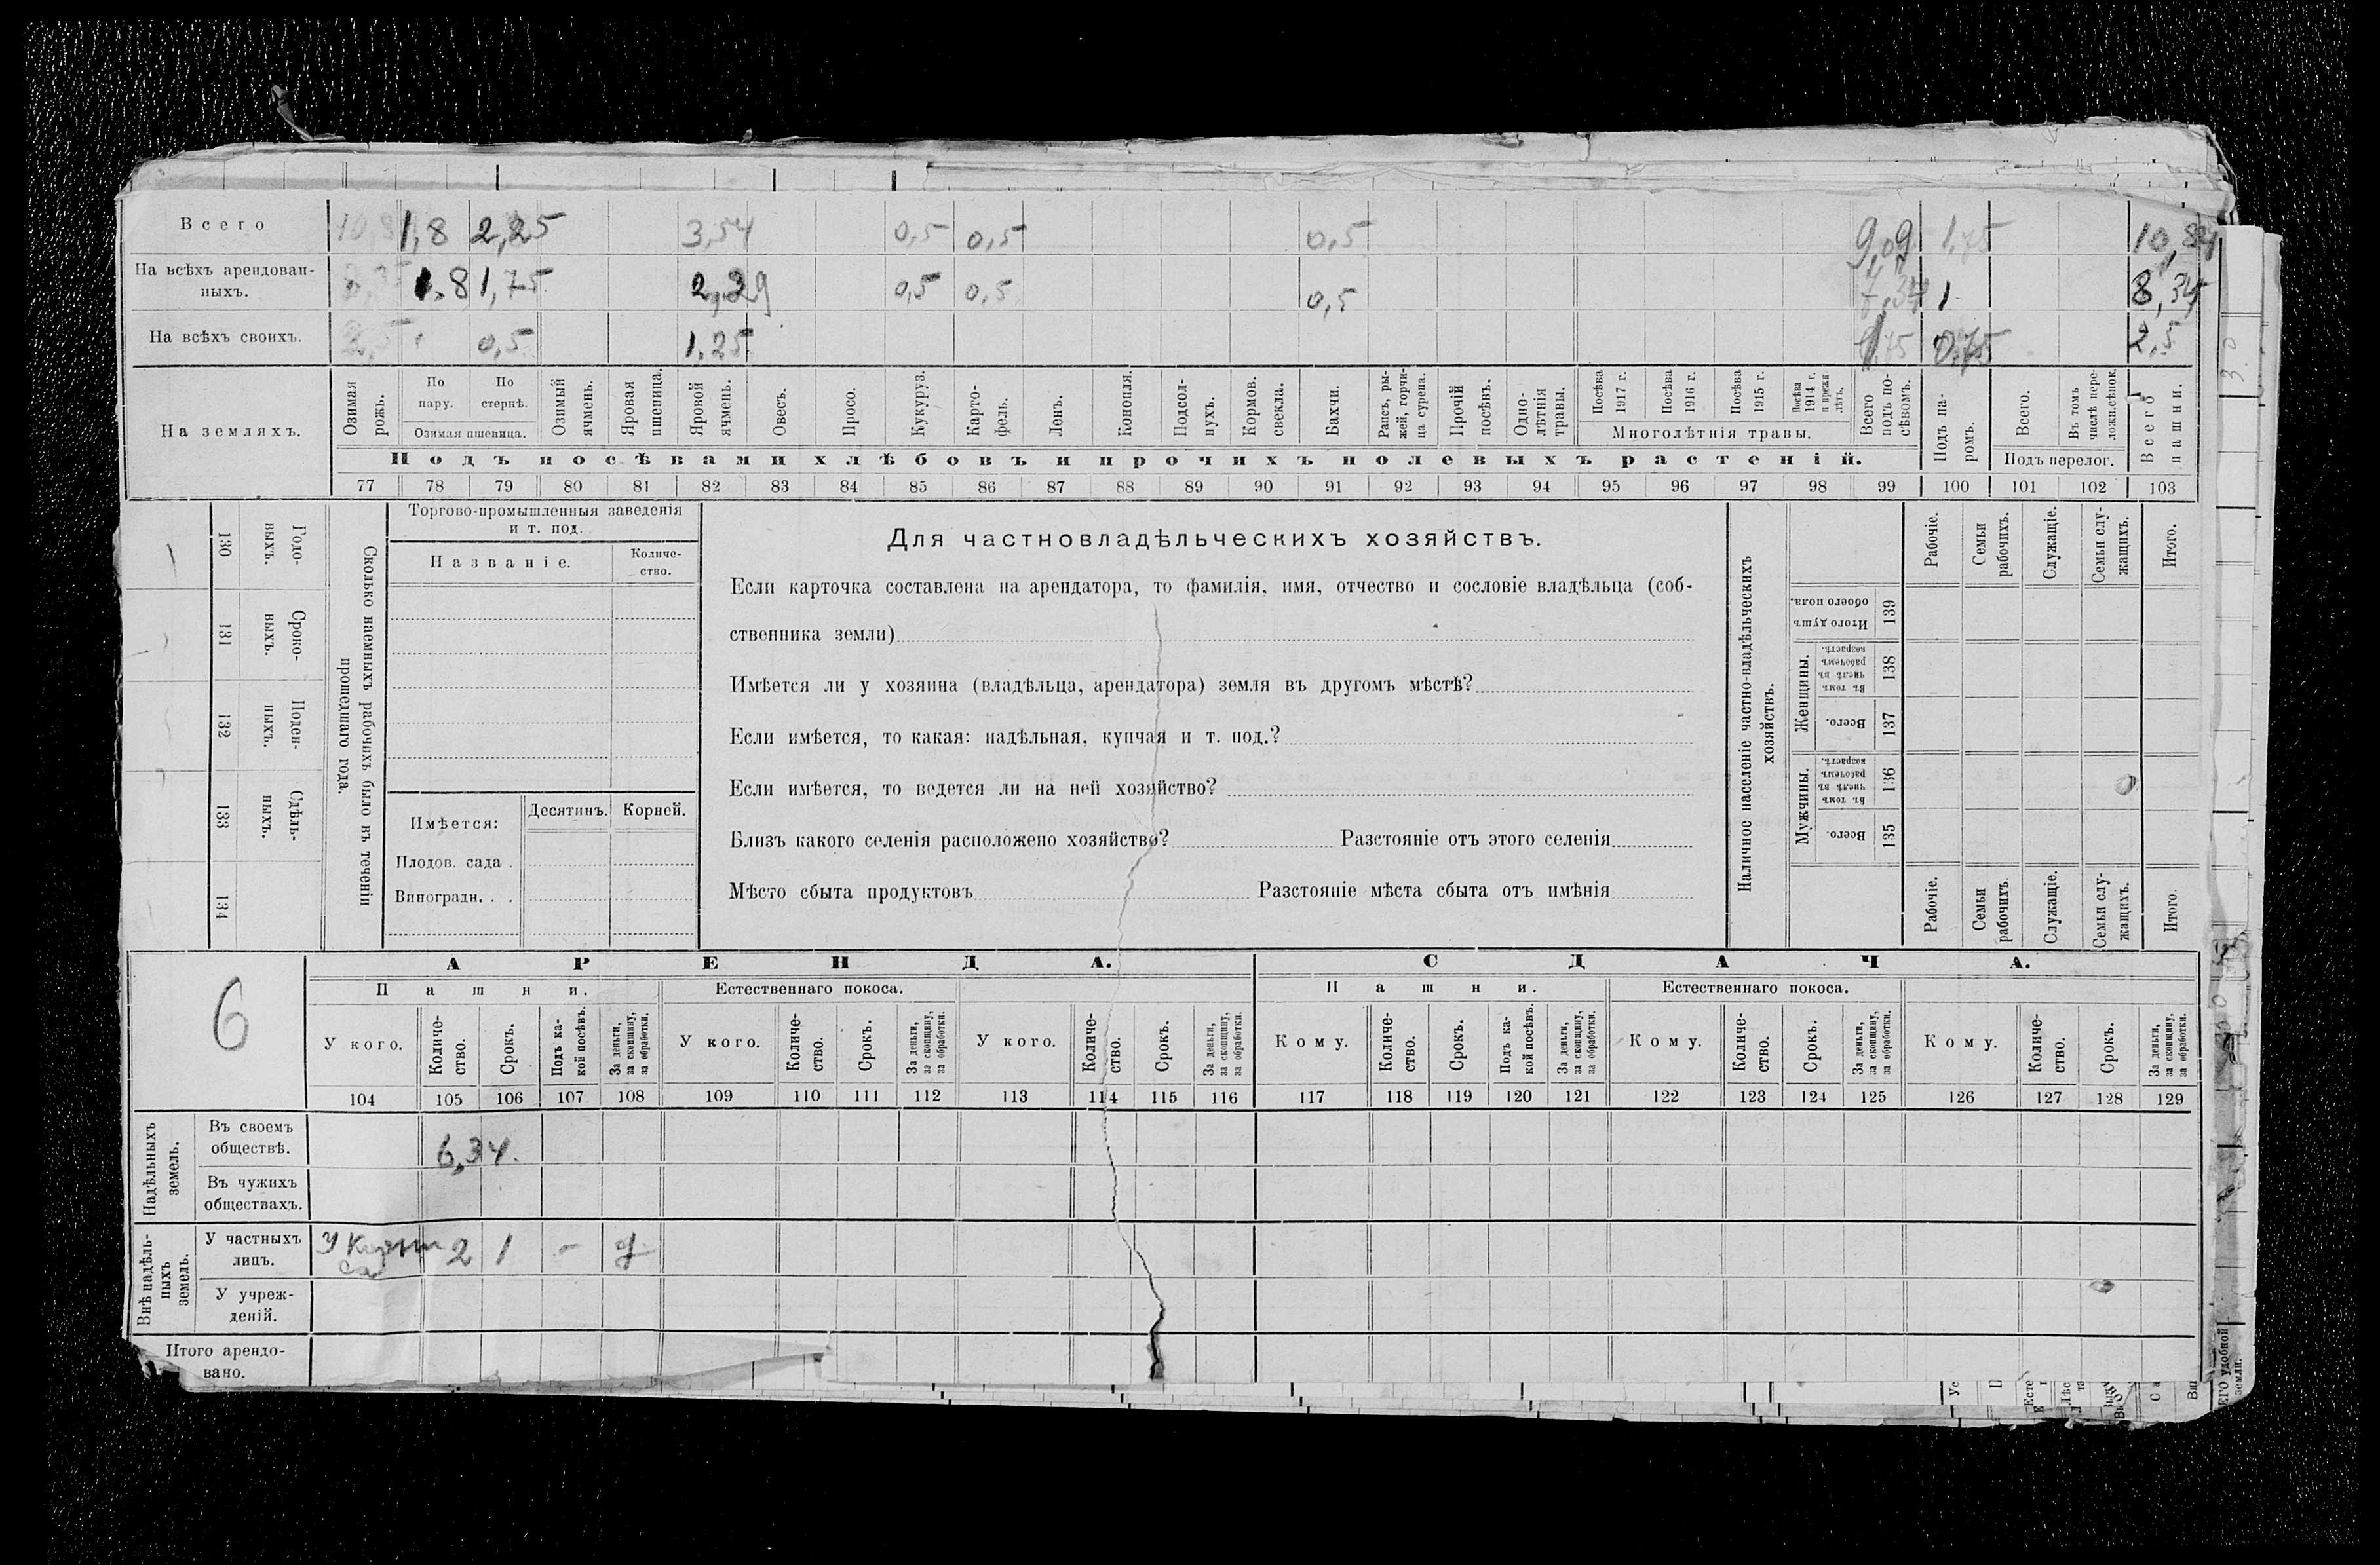 Всего 1,8 2,25 3,54 0,5 0,5 0,5 9,09 1,75 10,84
На всѣхъ арендован-
ныхъ. 1.8 1,75 2,29 0,5 0,5 0,5 7,34 1 8,34
На всѣхъ своихъ. 2,5 0,5 1.25 1,75 0,75 2,5
На земляхъ.
Озимая рожь.
По пару.
По стернѣ.
Озимая пшеница.
Озимый ячмень.
Яровая пшеница.
Яровой ячмень.
Овесъ.
Просо.
Кукуруз.
Карто-
фель.
Ленъ.
Конопля.
Подсол-
нухъ.
Кормов.
свекла.
Бахчи.
Рапсъ, ры-
жей, горчи-
ца сурепа.
Прочій
посѣвъ.
Одно-
лѣтнія
травы.
Посѣва
1917 г.
Посѣва
1916 г.
Посѣва
1915 г.
Посѣва
1914 г.
и прежн
лѣтъ.
Многолѣтнія травы.
Всего
подъ по-
сѣвомъ.
Подъ па-
ромъ.
Всего.
Въ томъ
числѣ пере-
ложн.сѣнок.
Подъ перелог.
Всего
пашни.
Подъ посѣвами хлѣбовъ и прочихъ полевыхъ растеній.
77 78 79 80 81 82 83 84 85 86 87 88 89 90 91 92 93 94 95 96 97 98 99 100 101 102 103
Годо-
выхъ.
130
Сроко-
выхъ.
131
Поден-
ныхъ.
132
Сдѣль-
ныхъ.
133
134
Сколько наемныхъ рабочихъ было въ теченіи
прошедшаго года.
Торгово-промышленныя заведенія
и т. под.
Названіе.
Количе-
ство.
Имѣется:
Десятинъ.
Корней.
Плодов. сада .
Виноградн. . .
Для частновладѣльческихъ хозяйствъ.
Если карточка составлена на арендатора, то фамилія, имя, отчество и сословіе владѣльца (соб-
ственника земли)
Имѣется ли у хозяина (владѣльца, арендатора) земля въ другомъ мѣстѣ?
Если имѣется, то какая: надѣльная, купчая и т. под.?
Если имѣется, то ведется ли на ней хозяйство?
Близъ какого селенія расположено хозяйство? Разстояніе отъ этого селенія
Мѣсто сбыта продуктовъ Разстояніе мѣста сбыта отъ имѣнія
Наличное населеніе частно-владѣльческихъ
хозяйствъ.
Рабочіе.
Семьи
рабочихъ.
Служащіе.
Семьи слу-
жащихъ.
Итого.
Итого душъ
обоего пола.
139
Женщины.
Въ томъ
числѣ въ
рабочемъ
возрастѣ.
138
Всего.
137
Мужчины.
Въ томъ
числѣ въ
рабочемъ
возрастѣ.
136
Всего.
135
Рабочіе.
Семьи
рабочихъ
Служащіе.
Семьи слу-
жащихъ.
Итого
6
АРЕНДА.
СДАЧА.
Пашни.
Естественнаго покоса.
Пашни.
Естественнаго покоса.
У кого.
Количе-
ство.
Срокъ.
Подъ ка-
кой посѣвъ.
За деньги,
за скопщину,
за обработки.
У кого.
Количе-
ство.
Срокъ.
За деньги,
за скопщину,
за обработки.
У кого.
Количе-
ство.
Срокъ.
За деньги,
за скопщину,
за обработки.
Кому.
Количе-
ство.
Срокъ.
Подъ ка-
кой посѣвъ.
За деньги,
за скопщину,
за обработки.
Кому.
Количе-
ство.
Срокъ.
За деньги,
за скопщину,
за обработки.
Кому.
Количе-
ство.
Срокъ.
За деньги,
за скопщину,
за обработки.
104 105 106 107 108 109 110 111 112 113 114 115 116 117 118 119 120 121 122 123 124 125 126 127 128 129
Надѣльныхъ
земель.
Въ своемъ
обществѣ. 6,34.
Въ чужихъ
обществахъ.
Внѣ надѣль-
ныхъ
земель.
У частныхъ
лицъ. У 2 1 - д
У учреж-
деній.
Итого арендо-
вано.
ЕГО удобной
земли.